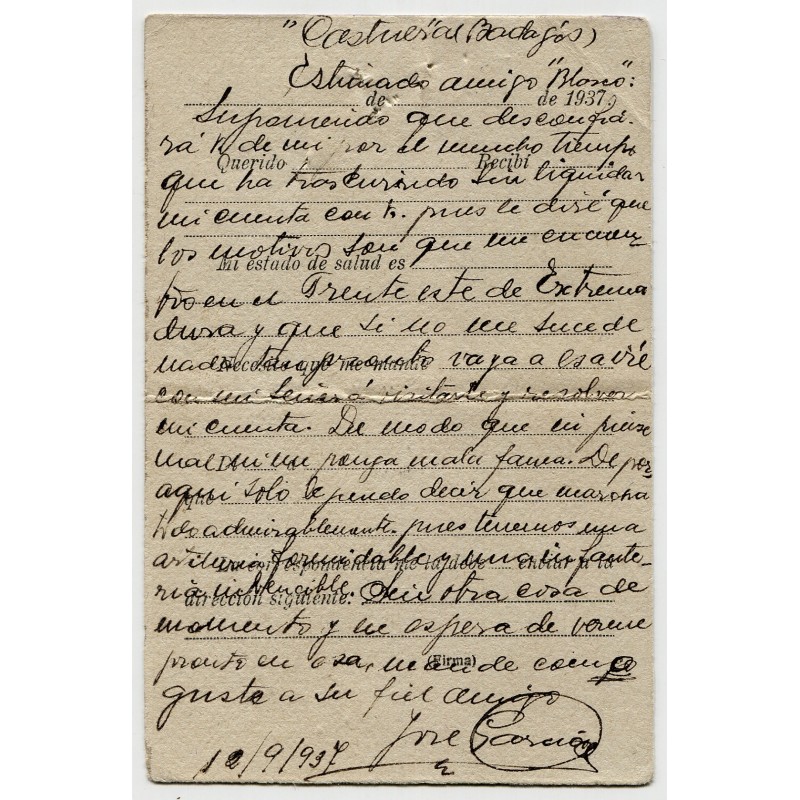 "Castuera (Badajós)
Estimado amigo "Blosco":
de de 1937,
Suponiendo que desconfia-
rá V. de mi por el muncho tiempo
Querido Recibí
que ha trascurido sin liquidar
mi cuenta con V. pues le diré que
los motivos son que me encuen
Mi estado de salud es
tro en el Frente este de Extrema
dura y que si no me sucede
nada tan pronto vaya a esa iré
Necesito que me mande
con mi señora visitarle y resolver
mi cuenta. De modo que ni piense
mal ni me ponga mala fama. De por
aquí solo le puedo decir que marcha
todo admirablemente. pues tenemos una
artilleria formidable y una infante-
correspondencia me la debe enviar a la
ria invencible. Sin otra cosa de
dirección siguiente:
momento y en espera de verme
pronto en esa, mande como
(Firma)
guste a su fiel amigo
José García
12/9/937